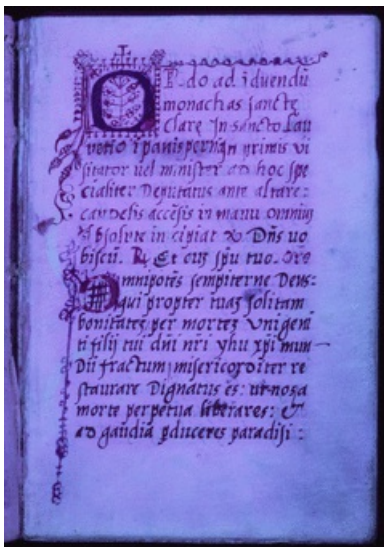 ORdo ad īduendū
monachas sanctę
Clarę In sancto Lau
rētio ī panisperna in primis vi
sitator uel minister ad hoc spe
cialiter Deputatus ante altare:
candelis accēsis in manu omnium
Absolute incipiat V. Dn̄s uo
biscū. R. Et cuȝ spū tuo. Orō
Omnipotēs sempiterne Deus:
qui propter tuaȝ solitam
bonitateȝ per morteȝ Vnigeni
ti filij tui dn̄i nr̄i yhu xp̄i mun
Dū fractum misericorditer re
staurare Dignatus es: ut nos a
morte perpetua liberares: et
ad gaudia ꝑduceres paradisi: